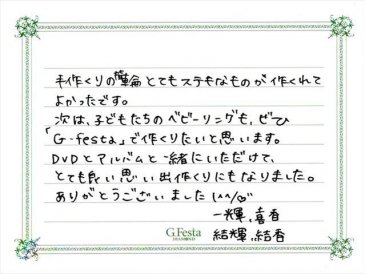 手作くりの指輪とてもステキなものが作くれて
よかったです。
次は、子どもたちの ベビーリングも、ぜひ
「G・festa」で作くりたいと思います。
DVDとアルバムと一緒にいただけて、
とても良い思い出作くりにもなりました。
ありがとうございました(^^)♡
一輝、喜香
結輝、結香
G.Festa
DIAMOND